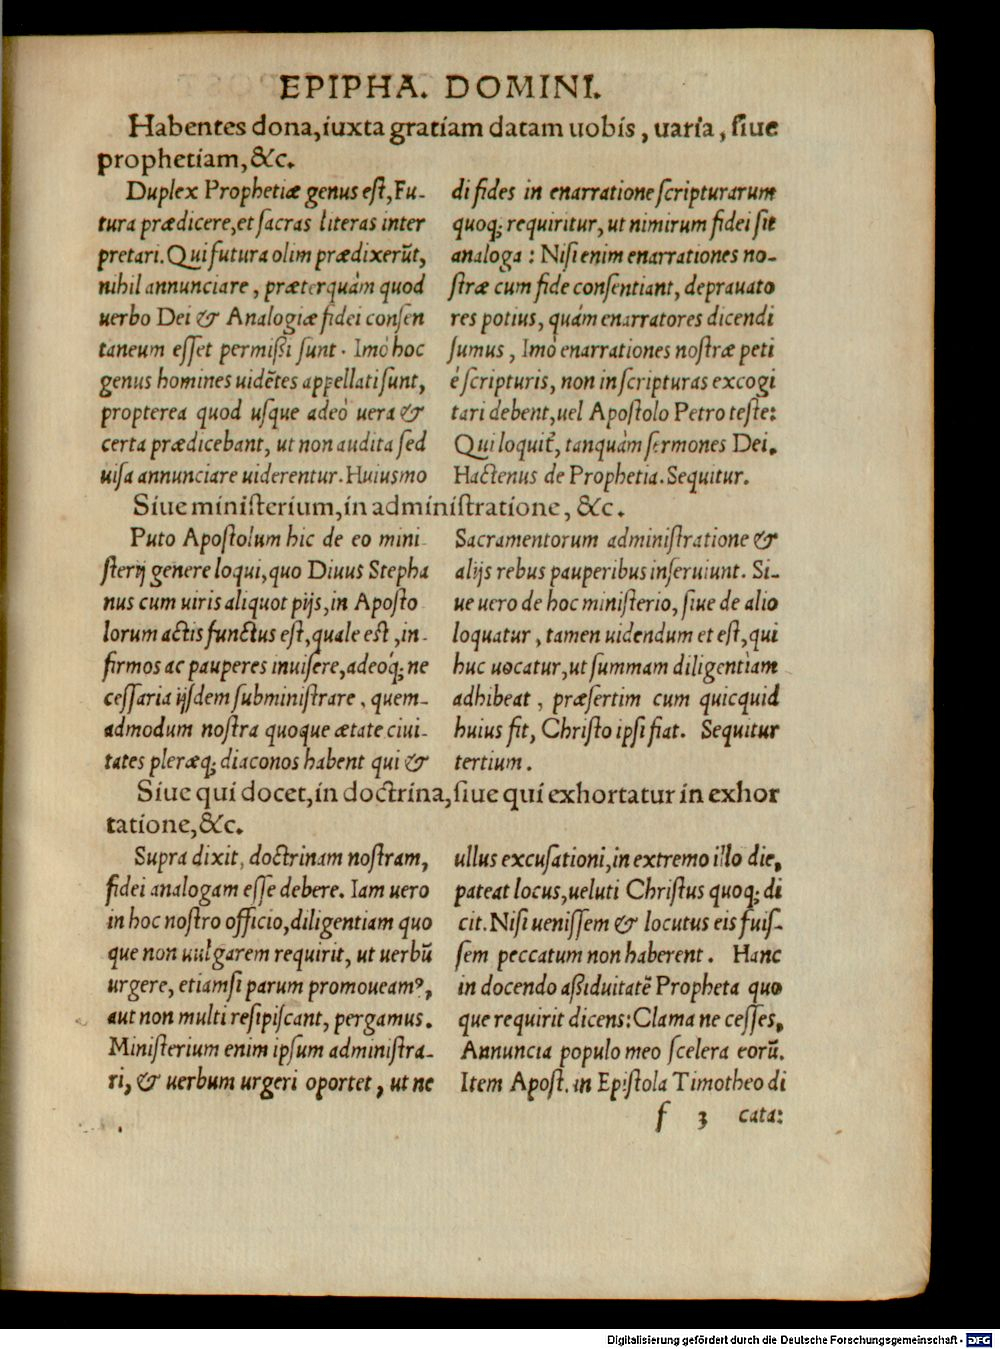 EPIPHA. DOMINI.
Habentes dona, iuxta gratiam datam uobis, uaria, siue
prophetiam, &c.
Duplex Prophetiæ genus est, Fu-
tura prædicere, et sacras literas inter
pretari. Qui futura olim prædixerūt,
nihil annunciare, præterquàm quod
uerbo Dei & Analogiæ fidei consen
taneum esset permissi sunt. Imò hoc
genus homines uidētes appellati sunt,
propterea quod usque adeò uera &
certa prædicebant, ut non audita sed
uisa annunciare uiderentur. Huiusmo
di fides in enarratione scripturarum
quoq; requiritur, ut nimirum fidei sit
analoga : Nisi enim enarrationes no-
stræ cum fide consentiant, deprauato
res potius, quám enarratores dicendi
sumus, Imò enarrationes nostræ peti
è scripturis, non in scripturas excogi
tari debent, uel Apostolo Petro teste:
Qui loquit᷑, tanquàm sermones Dei.
Hactenus de Prophetia. Sequitur.
Siue ministerium, in administratione, &c.
Puto Apostolum hic de eo mini-
sterij genere loqui, quo Diuus Stepha
nus cum uiris aliquot pijs, in Aposto
lorum actis functus est, quale est, in-
firmos ac pauperes inuisere, adeoq́; ne
cessaria ijsdem subministrare, quem-
admodum nostra quoque ætate ciui-
tates pleræq; diaconos habent qui &
Sacramentorum administratione &
alijs rebus pauperibus inseruiunt. Si-
ue uero de hoc ministerio, siue de alio
loquatur, tamen uidendum et est, qui
huc uocatur, ut summam diligentiam
adhibeat, præsertim cum quicquid
huius fit, Christo ipsi fiat. Sequitur
tertium.
Siue qui docet, in doctrina, siue qui exhortatur in exhor
tatione, &c.
Supra dixit, doctrinam nostram,
fidei analogam esse debere. Iam uero
in hoc nostro officio, diligentiam quo
que non uulgarem requirit, ut uerbū
urgere, etiamsi parum promoueam⁹,
aut non multi resipiscant, pergamus.
Ministerium enim ipsum administra-
ri, & uerbum urgeri oportet, ut ne
ullus excusationi, in extremo illo die,
pateat locus, ueluti Christus quoq; di
cit. Nisi uenissem & locutus eis fuis-
sem peccatum non haberent. Hanc
in docendo assiduitatē Propheta quo
que requirit dicens: Clama ne cesses,
Annuncia populo meo scelera eorū.
Item Apost. in Epistola Timotheo di
f 3 cata:
Digitalisierung gefördert durch die Deutsche Forschungsgemeinschaft - DFG